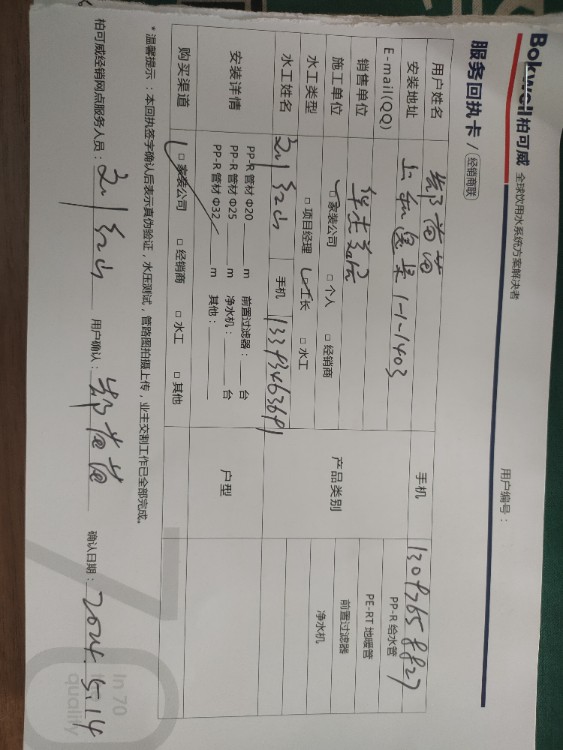 Bokwell柏可威 全球饮用水系统方案解决者
用户编号：
服务回执卡 / 经销商联
用户姓名 手机
安装地址 1-1-1403
E-mail(QQ) 产品类别 PP-R 给水管
销售单位 PE-RT 地暖管
施工单位 □ 家装公司 □ 个人 □ 经销商 前置过滤器
水工类型 □ 项目经理 □ 工长 □ 水工 净水机
水工姓名 刘红山 手机
安装详情 PP-R 管材 Φ20 m 前置过滤器： 台 户型
PP-R 管材 Φ25 m 净水机： 台
PP-R 管材 Φ32 m 其他：
购买渠道 □ 家装公司 □ 经销商 □ 水工 □ 其他
*温馨提示：本回执签字确认后表示真伪验证，水压测试，管路图拍摄上传，业主交割工作已全部完成。
柏可威经销网点服务人员：刘红山 用户确认： 确认日期：2024.5.14
70
In 70
quality